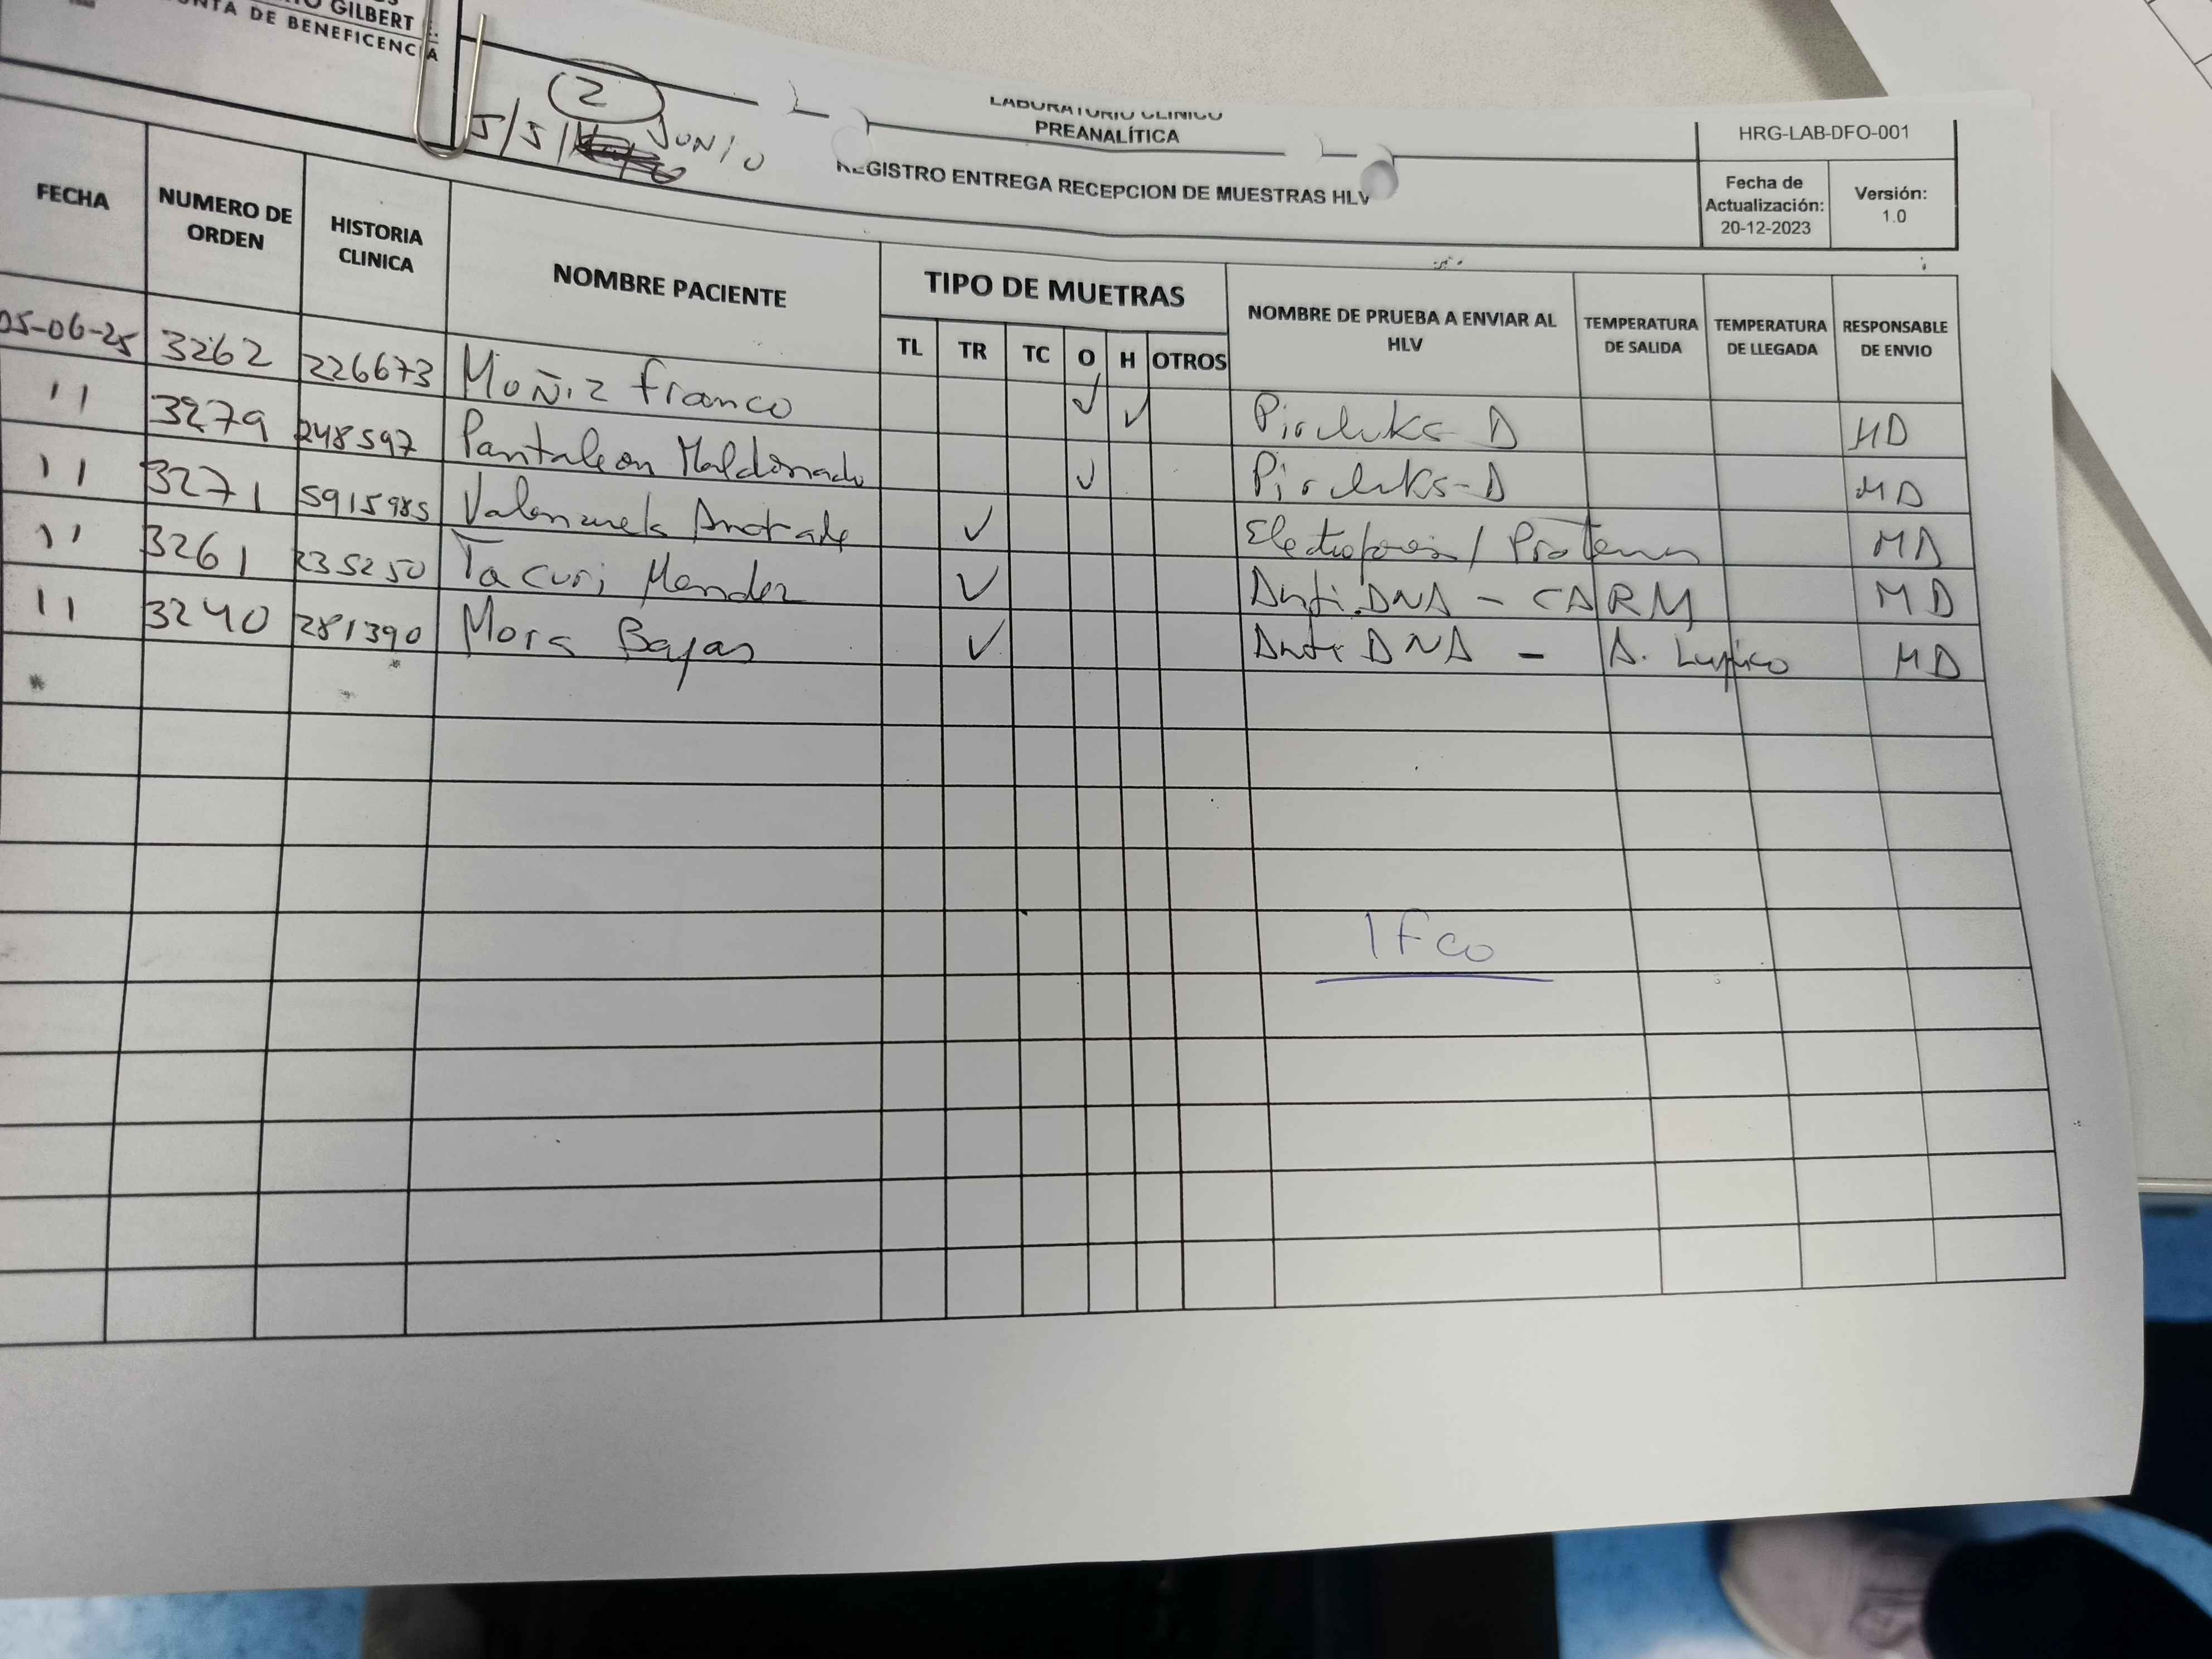 GILBERT E.
JUNTA DE BENEFICENCIA
2
5/5/ JUNIO
LABORATORIO CLINICO
PREANALÍTICA
REGISTRO ENTREGA RECEPCION DE MUESTRAS HLV
HRG-LAB-DFO-001
Fecha de Actualización: 20-12-2023
Versión: 1.0
FECHA NUMERO DE ORDEN HISTORIA CLINICA NOMBRE PACIENTE TIPO DE MUETRAS NOMBRE DE PRUEBA A ENVIAR AL HLV TEMPERATURA DE SALIDA TEMPERATURA DE LLEGADA RESPONSABLE DE ENVIO
TL TR TC O H OTROS
05-06-25 3262 226673 Muñiz Franco ✓ ✓ MD
11 3279 248597 Pantaleon Maldonado ✓ MD
11 3271 5915985 Valenzuela Andrade ✓ MD
11 3261 235250 Tacuri Mendez ✓ Anti DNA - CARM MD
11 3240 281390 Mora Bajas ✓ Anti DNA - A. Lupico MD
1 Fco